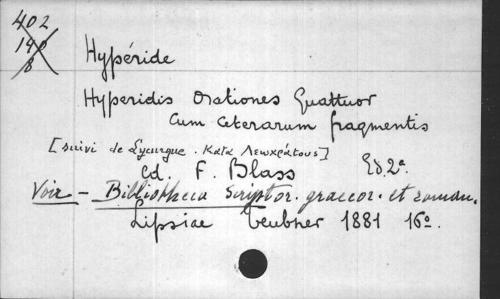 402
190
8
Hypéride
Hyperidis Orationes Quattuor
Cum Ceterarum fragmentis
[suivi de Lycurgue. Κατα Λεωκράτους]
Ed. F. Blass Ed. 2a.
Voir - Bibliotheca Scriptor. graecor. et roman.
Lipsiae Teubner 1881 16o.